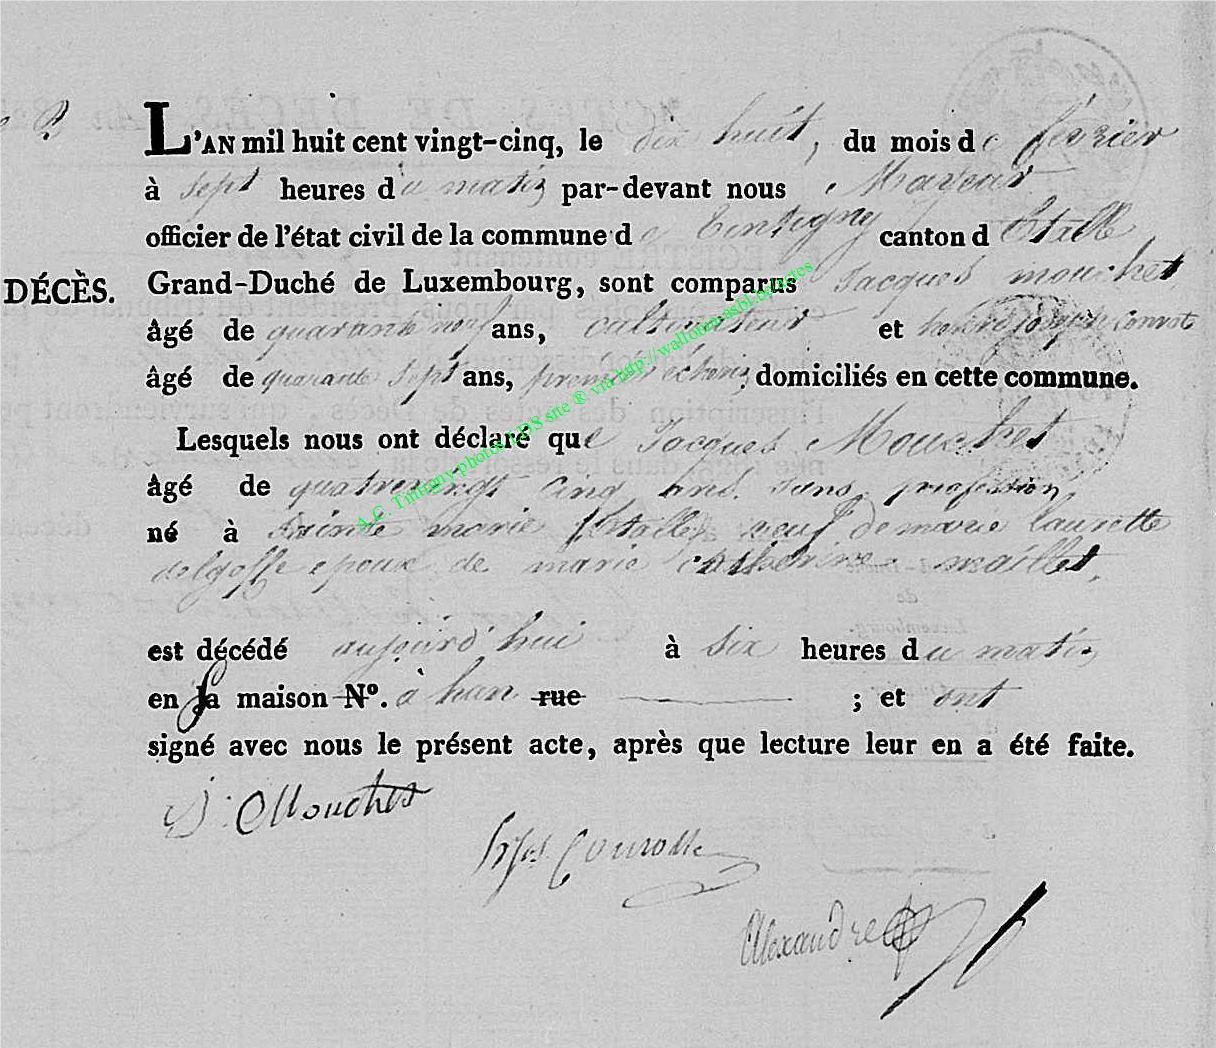 L'AN mil huit cent vingt-cinq, le dix huit, du mois de fevrier
à sept heures du matin par-devant nous
officier de l'état civil de la commune de tintigny canton d Etalle
DÉCÈS. Grand-Duché de Luxembourg, sont comparus Jacques mouchet
âgé de quarante neuf ans, cultivateur et joseph
âgé de quarante sept ans, domiciliés en cette commune.
Lesquels nous ont déclaré que Jacques Mouchet
âgé de quatrevingt cinq ans sans profession
né à Sainte marie veuf de marie laurette
epoux de marie catherine maillet
est décédé aujourd'hui à six heures du matin
en la maison N°. à han rue ; et ont
signé avec nous le présent acte, après que lecture leur en a été faite.
J. Mouchet
Alexandre
A.C. Tintigny photos LDS site ® via http://wallonia-asbl.be/actes